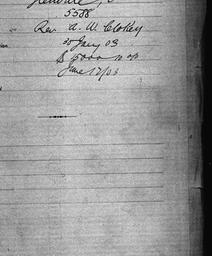 5588
Rev. A. W. Clokey
30 Jany 03
$ 5000
June 17/03